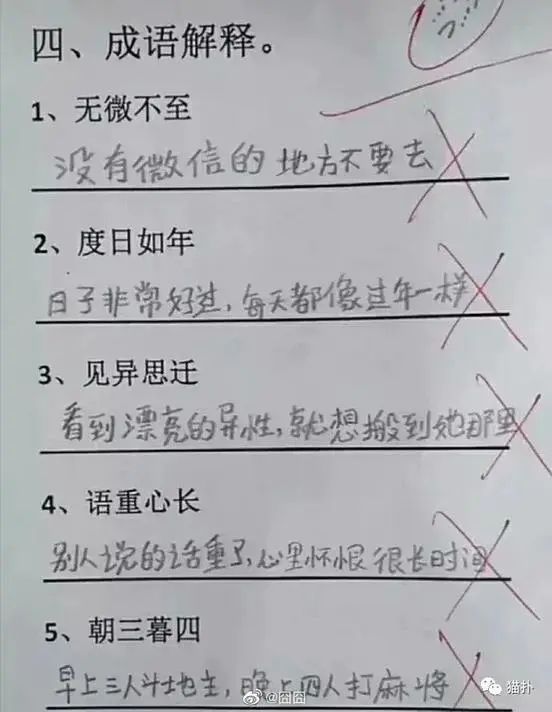 四、成语解释。
1、无微不至
没有微信的地方不要去
2、度日如年
日子非常好过，每天都像过年一样
3、见异思迁
看到漂亮的异性，就想搬到她那里
4、语重心长
别人说的话重了，心里怀恨很长时间
5、朝三暮四
早上三人斗地主，晚上四人打麻将
@囧囧
猫扑